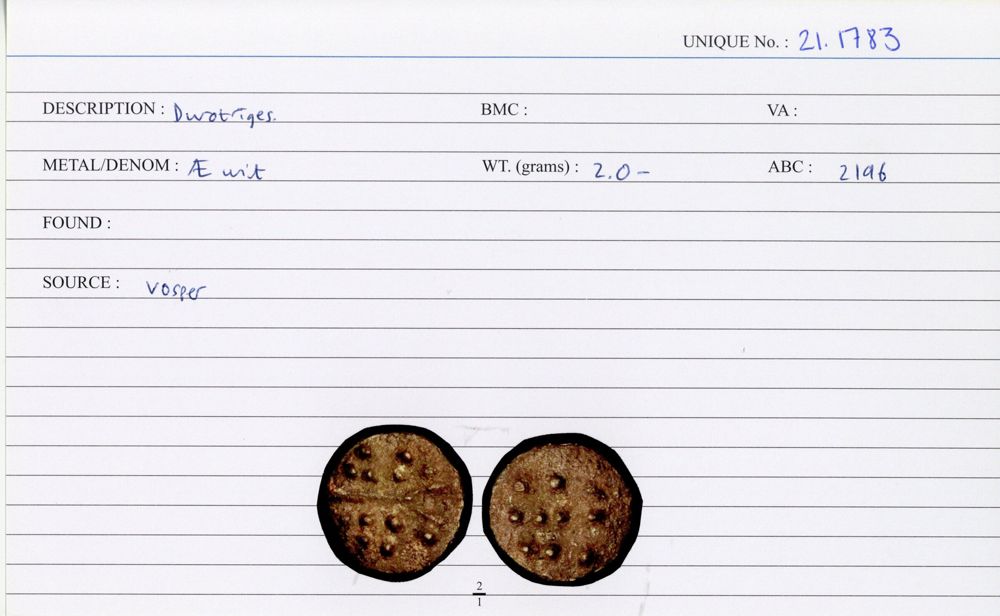 UNIQUE No. : 21.1783
DESCRIPTION : Durotriges. BMC : VA :
METAL/DENOM : Æ unit WT. (grams) : 2.0- ABC : 2196
FOUND :
SOURCE : Vosper
2
1